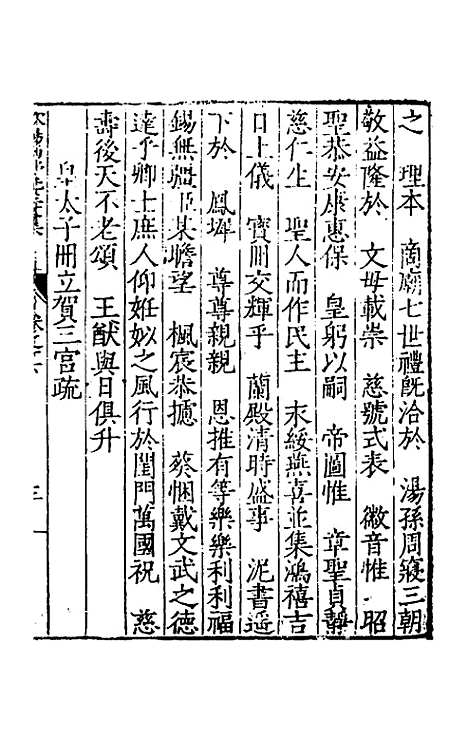 之　理本　商廟七世禮旣洽於　湯孫周寢三朝
敬益隆於　文母載崇　慈號式表　徽音惟　昭
聖恭安康惠保　皇躬以嗣　帝圖惟　章聖貞靜
慈仁生　聖人而作民主　末綏燕喜並集鴻禧吉
日上儀　寶冊交輝乎　蘭殿清時盛事　泥書遥
下於　鳳墀　尊尊親親　恩推有等樂樂利利福
錫無疆臣某瞻望　楓宸恭攄　葵悃戴文武之德
達乎卿士庶人仰姙姒之風行於閨門萬國祝　慈
壽後天不老頌　王猷與日俱升
皇太子冊立賀三宮疏
三